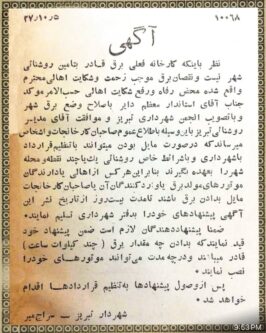 ۲۷/۱۰/۵ ۱۰۰۶۸
آگهی
نظر باینکه کارخانه فعلی برق قادر بتامین روشنائی
شهر نیست و نقصان برق موجب زحمت و شکایت اهالی محترم
واقع شده محض رفاه و رفع شکایت اهالی حسب الامر موکد
جناب آقای استاندار معظم دایر باصلاح وضع برق شهر
و با تصویب انجمن شهرداری تبریز و موافقت آقای مدیر
روشنائی تبریز باین وسیله باطلاع عموم صاحبان کارخانجات و اشخاص
میرساند که درصورت مایل بودن میتوانند با تنظیم قرارداد
با شهرداری و با شرائط خاص روشنائی یک یا چند نقطه و محله
شهر را بعهده بگیرند بنابراین هر کس از اهالی یا دارندگان
موتورهای مولد برق یا واردکنندگان آن یا صاحبان کارخانجات
مایل بدادن برق باشند تا مدت بیست روز از تاریخ نشر این
آگهی پیشنهادهای خود را بدفتر شهرداری تسلیم نمایند.
ضمنا پیشنهاد دهندگان لازم است ضمن پیشنهاد خود
قید نمایند که بدادن چه مقدار برق ( چند کیلوات ساعت )
قادر میباشند و در چه مدت میتوانند موتورهای خود را
نصب نمایند.
پس از وصول پیشنهادها به تنظیم قراردادها اقدام
خواهد شد.
شهردار تبریز ــ سراج میر
9:53PM